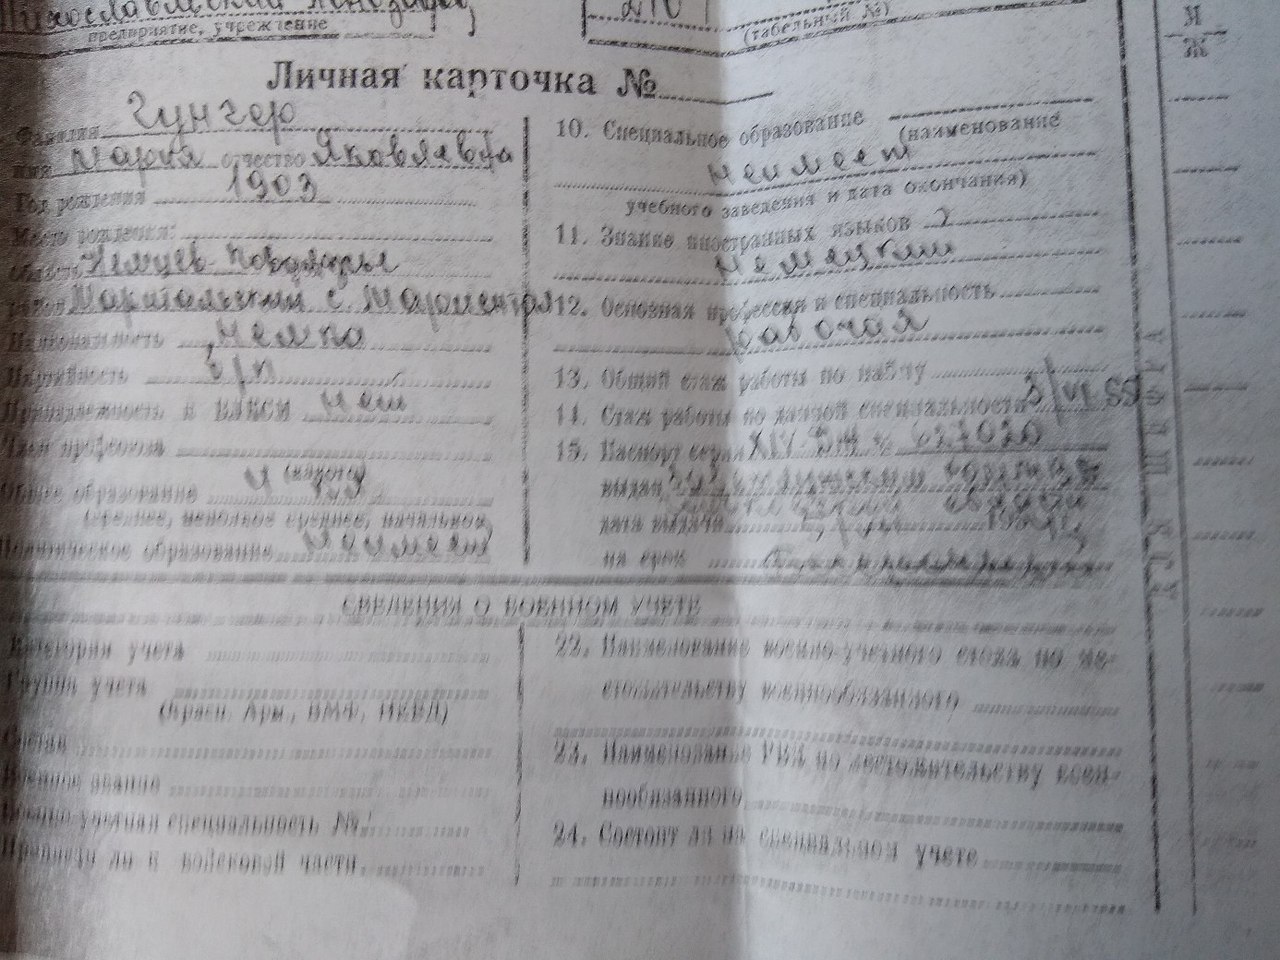 предприятие, учреждение
(табельный №)
М
Ж
Личная карточка №
Фамилия Гунгер
имя Мария отчество Яковлевна
Год рождения 1903
Место рождения:
Область Немцев-Поволжья
район с. Мариенталь
Национальность немка
Партийность б/п
Принадлежность к ВЛКСМ нет
Член профсоюза
(какого)
Общее образование
(среднее, неполное среднее, начальное)
Политическое образование неимеет
10. Специальное образование
(наименование
неимеет
учебного заведения и дата окончания)
11. Знание иностранных языков
немецкий
12. Основная профессия и специальность
рабочая
13. Общий стаж работы по найму
14. Стаж работы по данной специальности 3/VI 55
15. Паспорт серия XIV № 627020
выдан
дата выдачи
на срок
СВЕДЕНИЯ О ВОЕННОМ УЧЕТЕ
Категория учета
Группа учета
(Красн. Арм., ВМФ, НКВД)
Состав
Военное звание
Военно-учетная специальность №
Приписан ли к войсковой части
22. Наименование военно-учетного стола по ме-
стожительству военнообязанного
23. Наименование РВК по местожительству воен-
нообязанного
24. Состоит ли на специальном учете